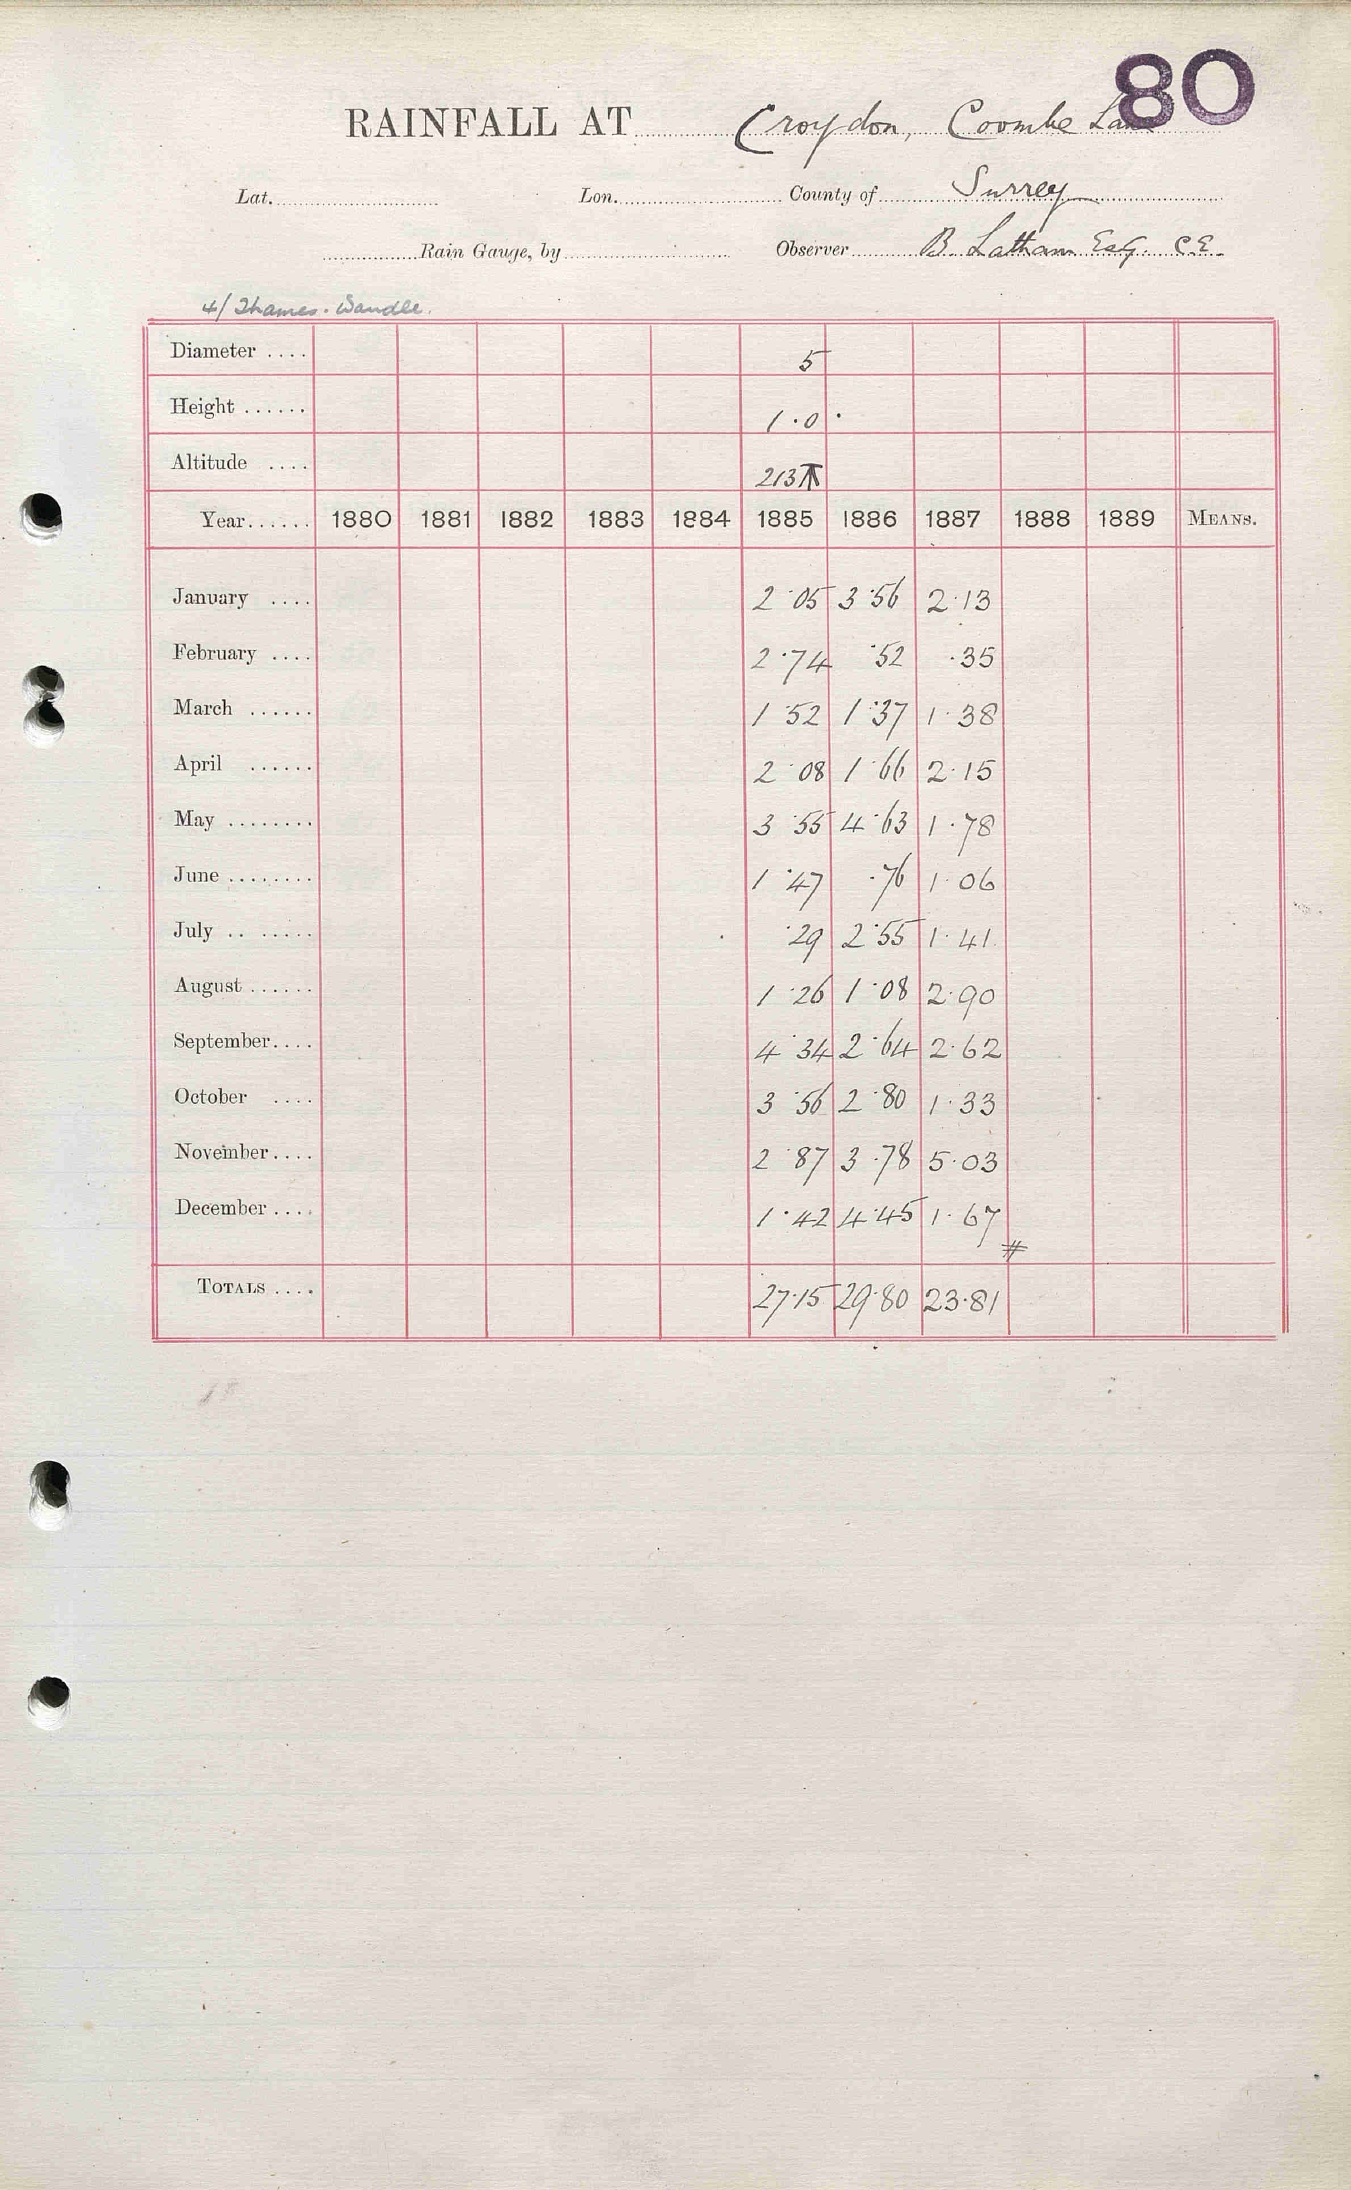 80
RAINFALL AT Croydon, Coombe Lane
Lat. Lon. County of Surrey
Rain Gauge, by Observer B. Latham Esq. C.E.
4/ Thames. Wandle.
Diameter .... 5
Height ...... 1.0
Altitude .... 213
Year...... 1880 1881 1882 1883 1884 1885 1886 1887 1888 1889 MEANS.
January .... 2.05 3.56 2.13
February .... 2.74 .52 .35
March ...... 1.52 1.37 1.38
April ...... 2.08 1.66 2.15
May ........ 3.55 4.63 1.78
June ........ 1.47 .76 1.06
July .. ..... .29 2.55 1.41
August ...... 1.26 1.08 2.90
September.... 4.34 2.64 2.62
October .... 3.56 2.80 1.33
November.... 2.87 3.78 5.03
December .... 1.42 4.45 1.67
#
TOTALS .... 27.15 29.80 23.81